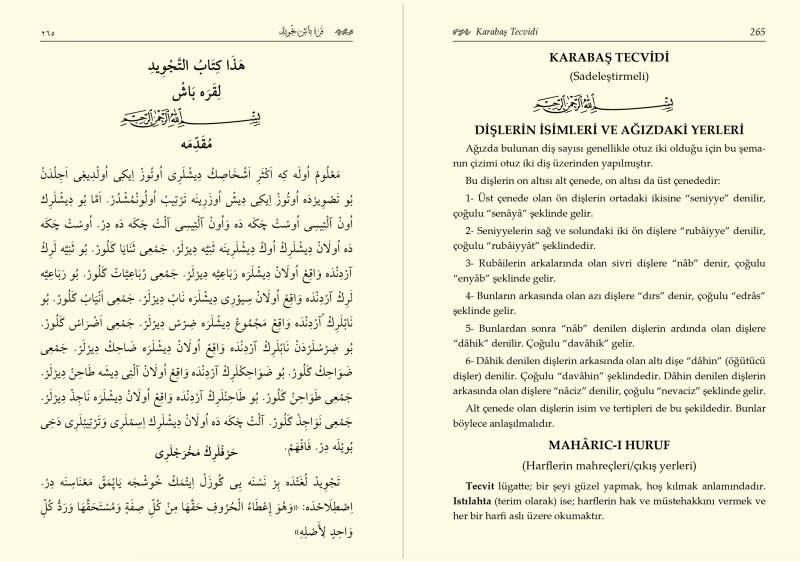 ٢٦٥
قره باش تجويد
هَذَا كِتَابُ التَّجْوِيدِ
لِقَرَه بَاشْ
بِسْمِ اللّٰهِ الرَّحْمٰنِ الرَّحِيمِ
مُقَدِّمَه
مَعْلُومْ اُولَه كِه اَكْثَرِ اَشْخَاصِكْ دِيشْلَرِى اُوتُوزْ اِيكِى اُولْدِيغِى اَجِلْدَنْ
بُو تَصْوِيرْدَه اُوتُوزْ اِيكِى دِيشْ اُوزَرِينَه تَرْتِيبْ اُولُونْمُشْدُرْ. اَمَّا بُو دِيشْلَرِكْ
اُونْ اَلْتِيسِى اُوسْتْ چَكَه دَه وَاُونْ اَلْتِيسِى اَلْتْ چَكَه دَه دِرْ. اُوسْتْ چَكَه
دَه اُولَانْ دِيشْلَرِكْ اُوكْ دِيشْلَرِينَه ثَنِيَّه دِيرْلَرْ. جَمْعِى ثَنَايَا كَلُورْ. بُو ثَنِيَّه لَرِكْ
آرْدِنْدَه وَاقِعْ اُولَانْ دِيشْلَرَه رَبَاعِيَّه دِيرْلَرْ. جَمْعِى رُبَاعِيَّاتْ كَلُورْ. بُو رَبَاعِيَّه
لَرِكْ آرْدِنْدَه وَاقِعْ اُولَانْ سِيوْرِى دِيشْلَرَه نَابْ دِيرْلَرْ. جَمْعِى اَنْيَابْ كَلُورْ. بُو
نَابْلَرِكْ آرْدِنْدَه وَاقِعْ مَجْمُوعْ دِيشْلَرَه ضِرْسْ دِيرْلَرْ. جَمْعِى اَضْرَاسْ كَلُورْ.
بُو ضِرْسْلَرْدَنْ نَابْلَرِكْ آرْدِنْدَه وَاقِعْ اُولَانْ دِيشْلَرَه ضَاحِكْ دِيرْلَرْ. جَمْعِى
ضَوَاحِكْ كَلُورْ. بُو ضَوَاحِكْلَرِكْ آرْدِنْدَه وَاقِعْ اُولَانْ اَلْتِى دِيشَه طَاحِنْ دِيرْلَرْ.
جَمْعِى طَوَاحِنْ كَلُورْ. بُو طَاحِنْلَرِكْ آرْدِنْدَه وَاقِعْ اُولَانْ دِيشْلَرَه نَاجِذْ دِيرْلَرْ.
جَمْعِى نَوَاجِذْ كَلُورْ. اَلْتْ چَكَه دَه اُولَانْ دِيشْلَرِكْ اِسِمْلَرِى وَتَرْتِيبْلَرِى دَخِى
بُويْلَه دِرْ. فَافْهَمْ.
حَرْفْلَرِكْ مَخْرَجْلَرِى
تَجْوِيدْ لُغَتْدَه بِرْ نَسْنَه يِى كُوزَلْ اِيتْمَكْ خُوشْجَه يَاپْمَقْ مَعْنَاسِنَه دِرْ.
اِصْطِلَاحْدَه: «وَهُوَ إِعْطَاءُ الْحُرُوفِ حَقَّهَا مِنْ كُلِّ صِفَةٍ وَمُسْتَحَقَّهَا وَرَدُّ كُلِّ
وَاحِدٍ لِأَصْلِهِ»
Karabaş Tecvidi
265
KARABAŞ TECVİDİ
(Sadeleştirmeli)
بِسْمِ اللّٰهِ الرَّحْمٰنِ الرَّحِيمِ
DİŞLERİN İSİMLERİ VE AĞIZDAKİ YERLERİ
Ağızda bulunan diş sayısı genellikle otuz iki olduğu için bu şema-
nın çizimi otuz iki diş üzerinden yapılmıştır.
Bu dişlerin on altısı alt çenede, on altısı da üst çenededir:
1- Üst çenede olan ön dişlerin ortadaki ikisine “seniyye” denilir,
çoğulu “senâyâ” şeklinde gelir.
2- Seniyyelerin sağ ve solundaki iki ön dişlere “rubâiyye” denilir,
çoğulu “rubâiyyât” şeklindedir.
3- Rubâilerin arkalarında olan sivri dişlere “nâb” denir, çoğulu
“enyâb” şeklinde gelir.
4- Bunların arkasında olan azı dişlere “dırs” denir, çoğulu “edrâs”
şeklinde gelir.
5- Bunlardan sonra “nâb” denilen dişlerin ardında olan dişlere
“dâhik” denilir. Çoğulu “davâhik” gelir.
6- Dâhik denilen dişlerin arkasında olan altı dişe “dâhin” (öğütücü
dişler) denilir. Çoğulu “davâhin” şeklindedir. Dâhin denilen dişlerin
arkasında olan dişlere “nâciz” denilir, çoğulu “nevaciz” şeklinde gelir.
Alt çenede olan dişlerin isim ve tertipleri de bu şekildedir. Bunlar
böylece anlaşılmalıdır.
MAHÂRIC-I HURUF
(Harflerin mahreçleri/çıkış yerleri)
Tecvit lügatte; bir şeyi güzel yapmak, hoş kılmak anlamındadır.
Istılahta (terim olarak) ise; harflerin hak ve müstehakkını vermek ve
her bir harfi aslı üzere okumaktır.